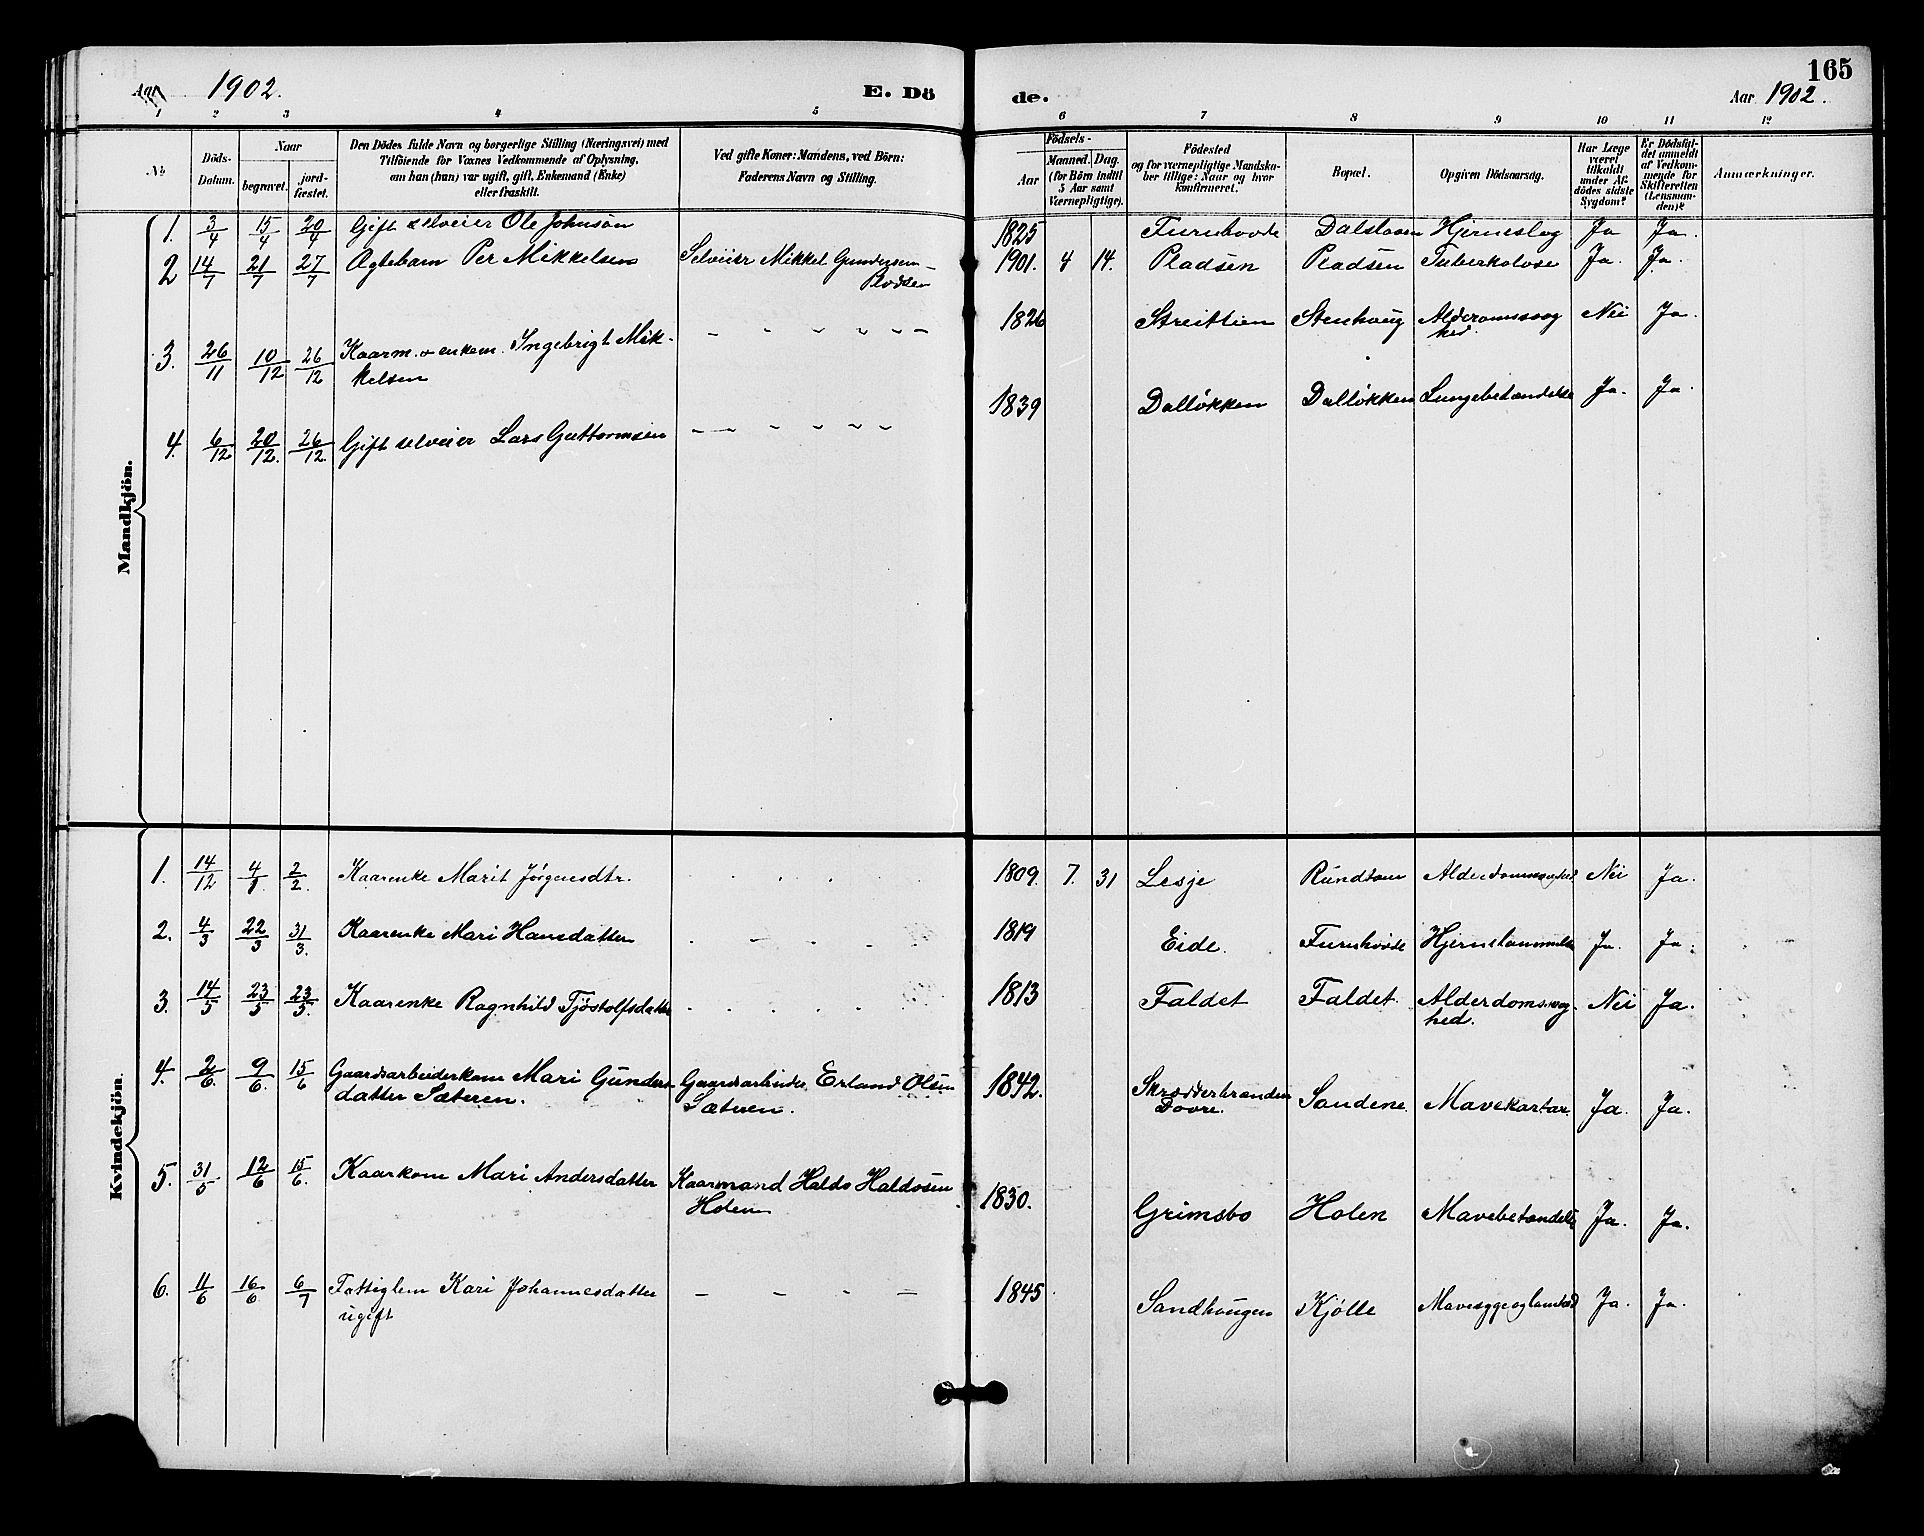 Aar 1902.
E. Dö
de.
165
Aar 1902.
1 2 3 4 5 6 7 8 9 10 11 12
No
Döds-
Datum.
Naar
begravet.
jord-
fæstet.
Den Dödes fulde Navn og borgerlige Stilling (Næringsvei) med
Tilföiende for Voxnes Vedkommende af Oplysning,
om han (hun) var ugift, gift, Enkemand (Enke)
eller fraskilt.
Ved gifte Koner: Mandens, ved Börn:
Faderens Navn og Stilling.
Födsels-
Aar
Maaned. Dag.
(for Börn indtil
5 Aar samt
Værnepligtige).
Födested
og for værnepligtige Mandska-
ber tillige: Naar og hvor
konfirmeret.
Bopæl.
Opgiven Dödsaarsag.
Har Læge
været
tilkaldt
under Af-
dödes sidste
Sygdom?
Er Dödsfal-
det anmeldt
af Vedkom-
mende for
Skifteretten
(Lensman-
den)?
Anmærkninger.
Mandkjön.
1. 3/4 15/4 20/4 Gift selveier Ole Johnsen 1825 Furuhovde Dalstuen Hjerneslag Ja Ja.
2 14/7 21/7 27/7 Ægtebarn Per Mikkelsen Selveier Mikkel Gundersen 1901. 4 14. Pladsen Pladsen Tuberkolose Ja. Ja.
Pladsen
3. 26/11 10/12 26/12 Kaarm. o enkem. Ingebrigt Mik- 1826 Streitlien Stenhaug Alderdomssvag Nei Ja.
kelsen hed.
4. 6/12 20/12. 26/12. Gift selveier Lars Guttormsen 1839 Dalløkken Dalløkken Lungebetændelse Ja. Ja.
Kvindekjön.
1. 14/12 4/1 2/2. Kaarenke Marit Jørgensdtr. 1809. 7. 31 Lesje Rundtom Alderdomssvaghed Nei Ja.
2. 4/3 22/3 31/3. Kaarenke Mari Hansdatter 1819 Eide. Furuhovde Ja. Ja.
3. 14/5 23/5 23/5. Kaarenke Ragnhild Tjöstolfsdatter 1813 Faldet Faldet. Alderdomssvag Nei Ja.
hed.
4. 2/6. 9/6. 15/6 Gaardsarbeiderkone Mari Gunders Gaardsarbeider Erland Olsen 1842. Skrædderbranden Sandene. Mavekartar Ja. Ja.
datter Sæteren. Sæteren. Dovre.
5. 31/5 12/6 15/6. Kaarkone Mari Andersdatter Kaarmand Haldo Haldosen 1830. Grimsbo Holen Mavebetændelse Ja. Ja.
Holen
6. 11/6 16/6. 6/7 Fattiglem Kari Johannesdatter 1845. Sandhaugen Kjølle Ja. Ja.
ugift